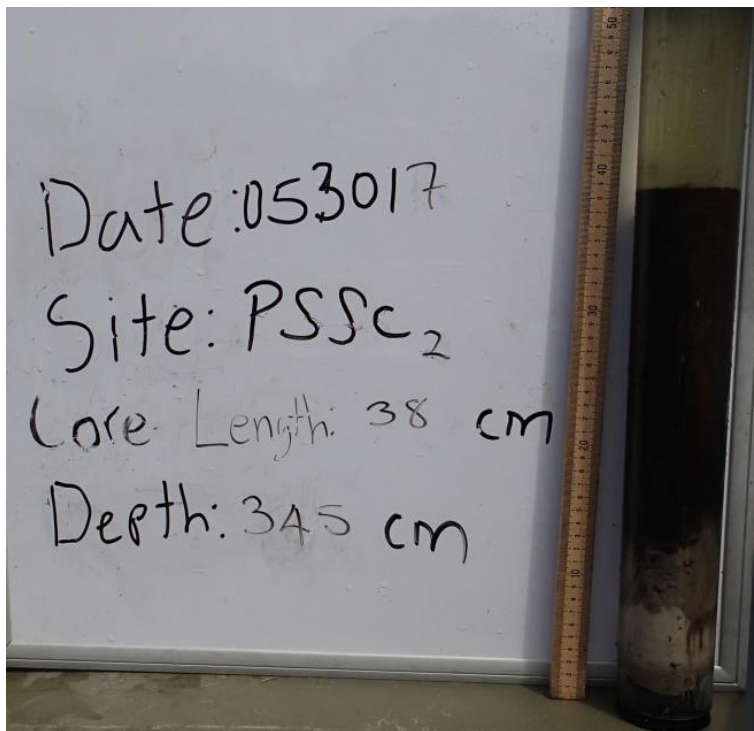 Date: 053017
Site: PSSC2
Core Length: 38 cm
Depth: 345 cm
50
40
30
20
10